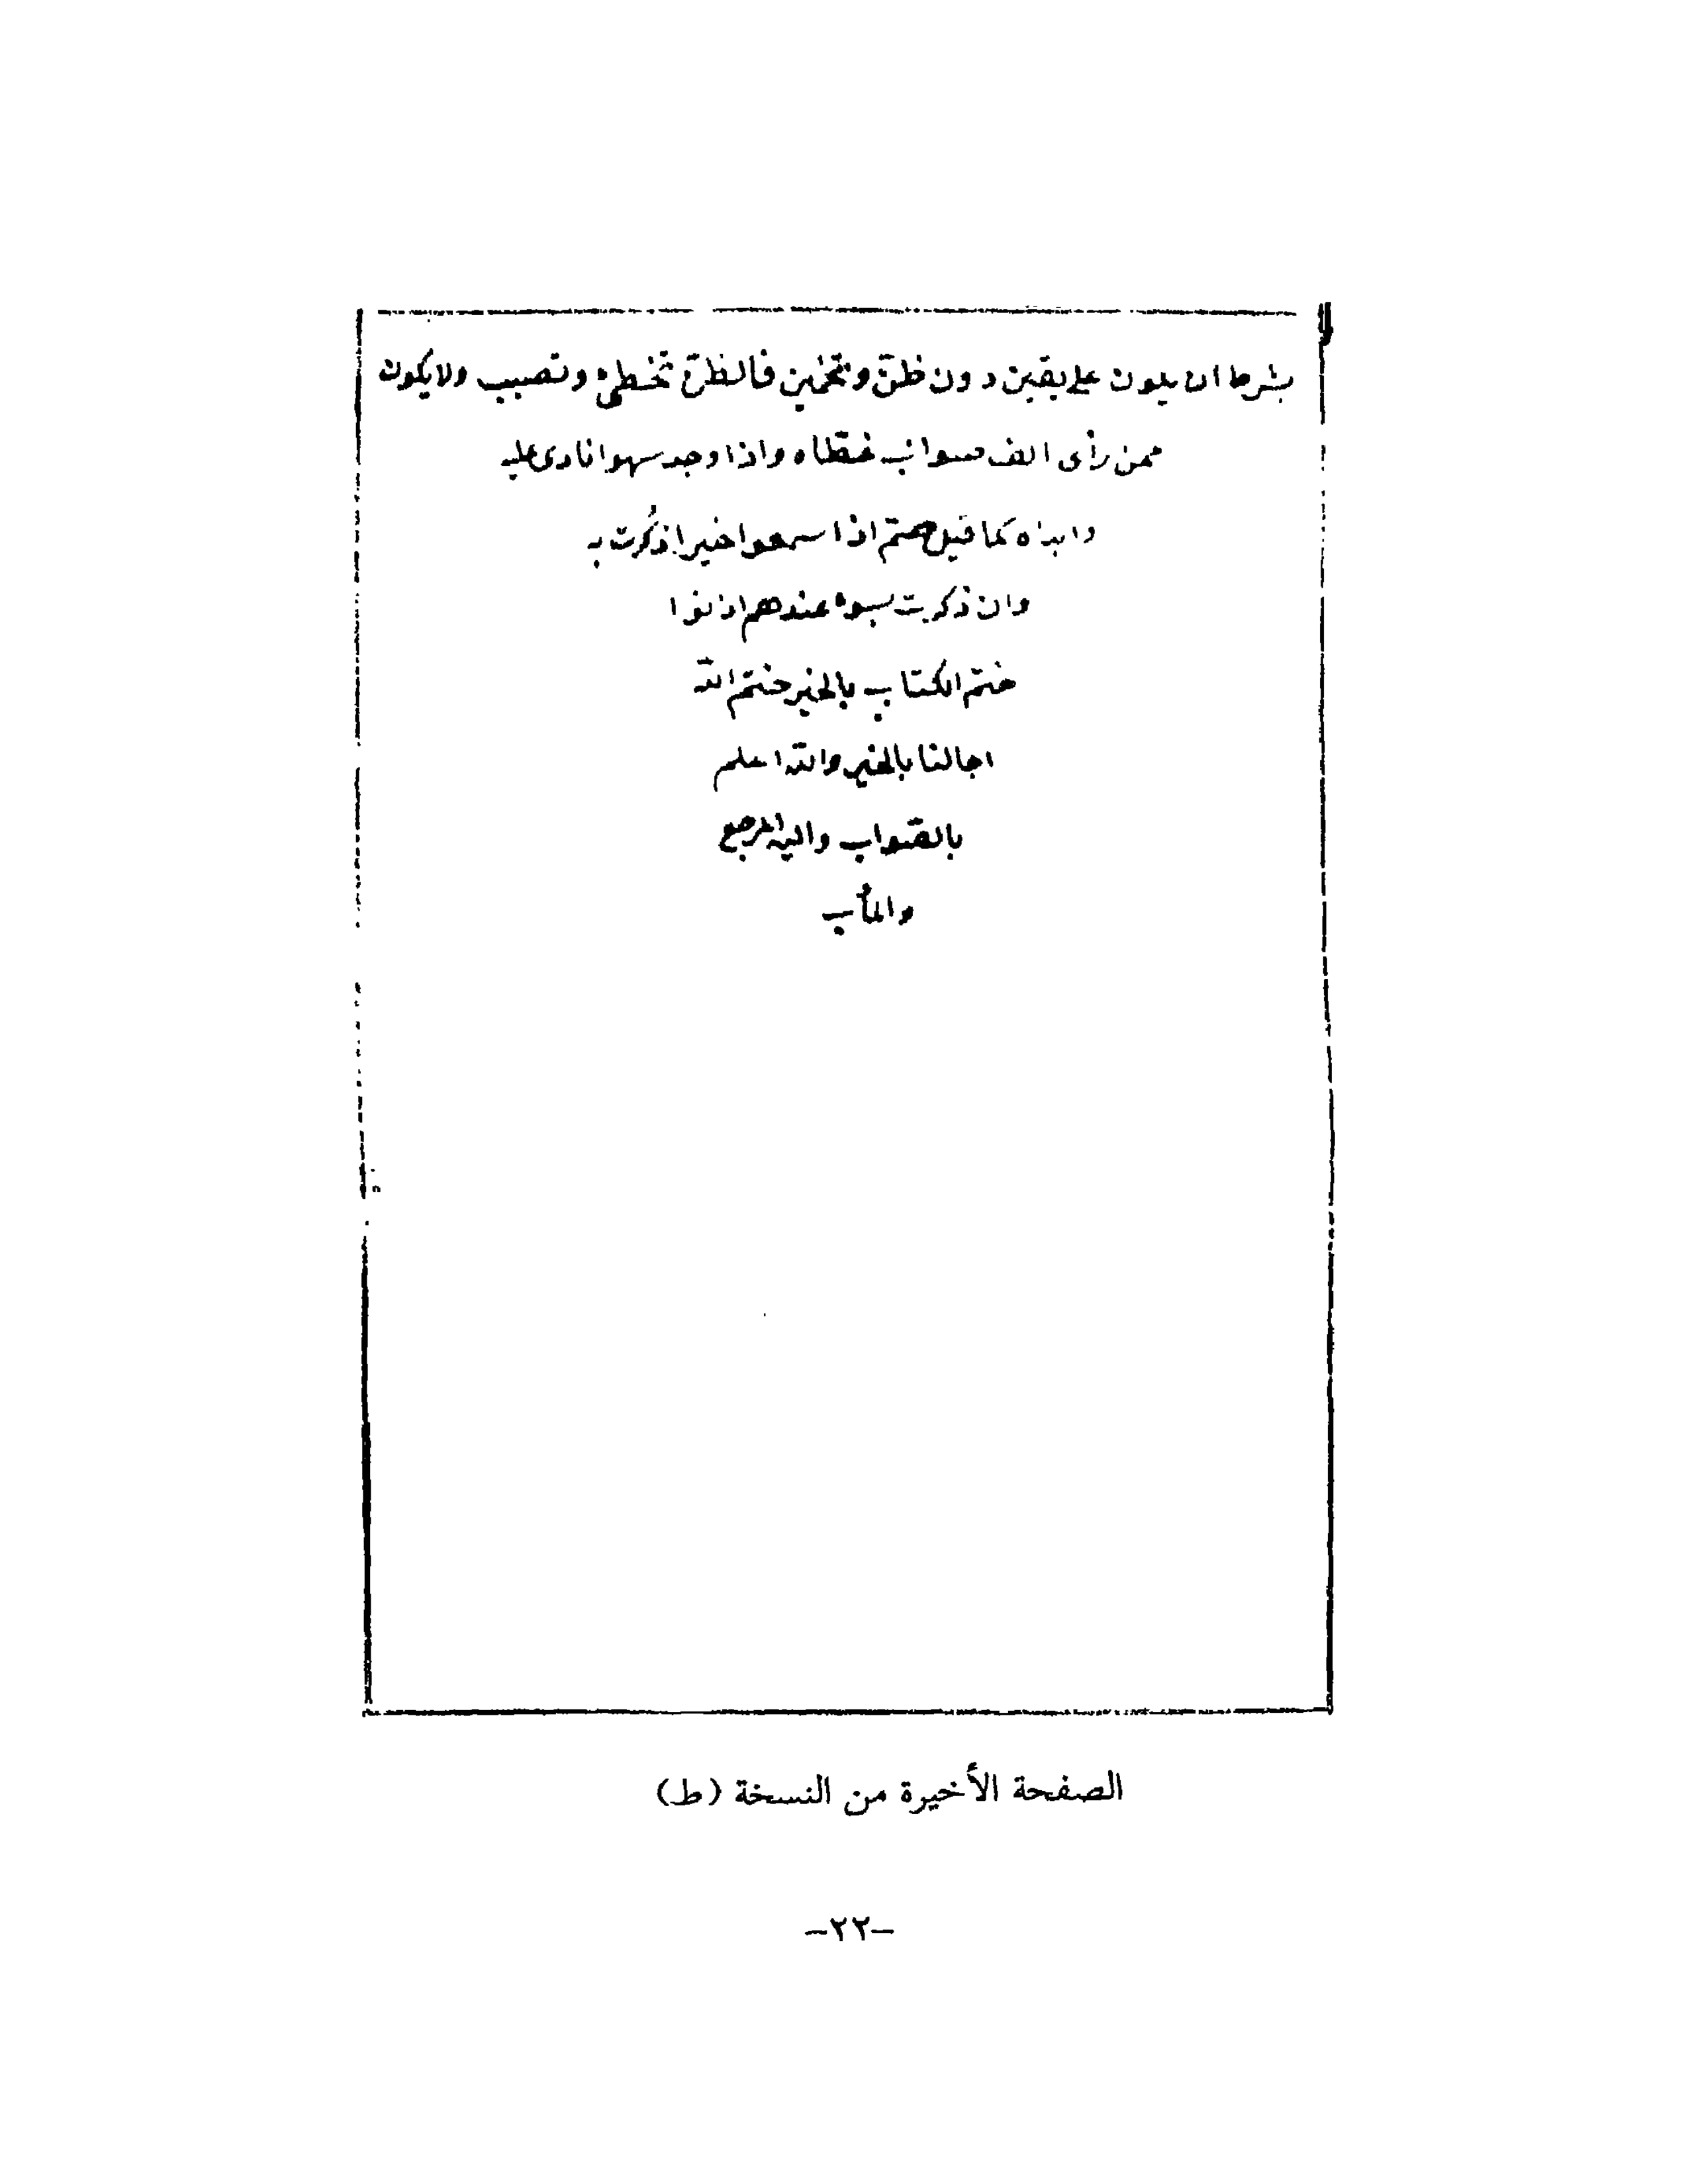 بشرط ان يكون على يقين دون ظن وتخمين فالنظرة تخطئ وتصيب ولا يكون
ممن رأى الف صواب فغطاه واذا وجد سهوا نادى عليه
وابداه كما قيل صم اذا سمعوا خيرا ذكرت به
وان ذكرت بسوء عندهم اذنوا
ختم الكتاب بالخير ختم الله
اجالنا بالخير والله اعلم
بالصواب واليه المرجع
والمأب
الصفحة الأخيرة من النسخة (ط)
–٢٢–